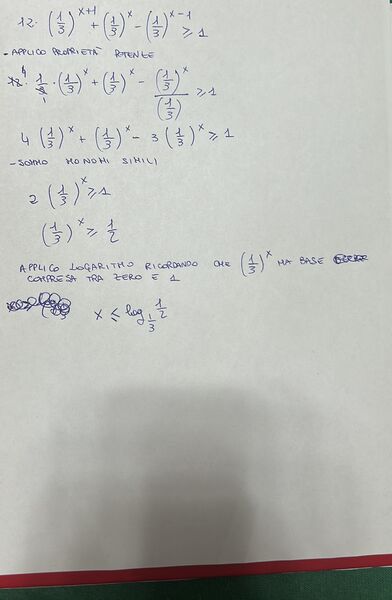 12·(1/3)^(x+1) + (1/3)^x − (1/3)^(x−1) ≥ 1
- APPLICO PROPRIETÀ POTENZE
12^4 · 1/3_1 · (1/3)^x + (1/3)^x − (1/3)^x/(1/3) ≥ 1
4 (1/3)^x + (1/3)^x − 3 (1/3)^x ≥ 1
- SOMMO MONOMI SIMILI
2 (1/3)^x ≥ 1
(1/3)^x ≥ 1/2
APPLICO LOGARITMO RICORDANDO CHE (1/3)^x HA BASE
COMPRESA TRA ZERO E 1
x ≤ log_(1/3) 1/2